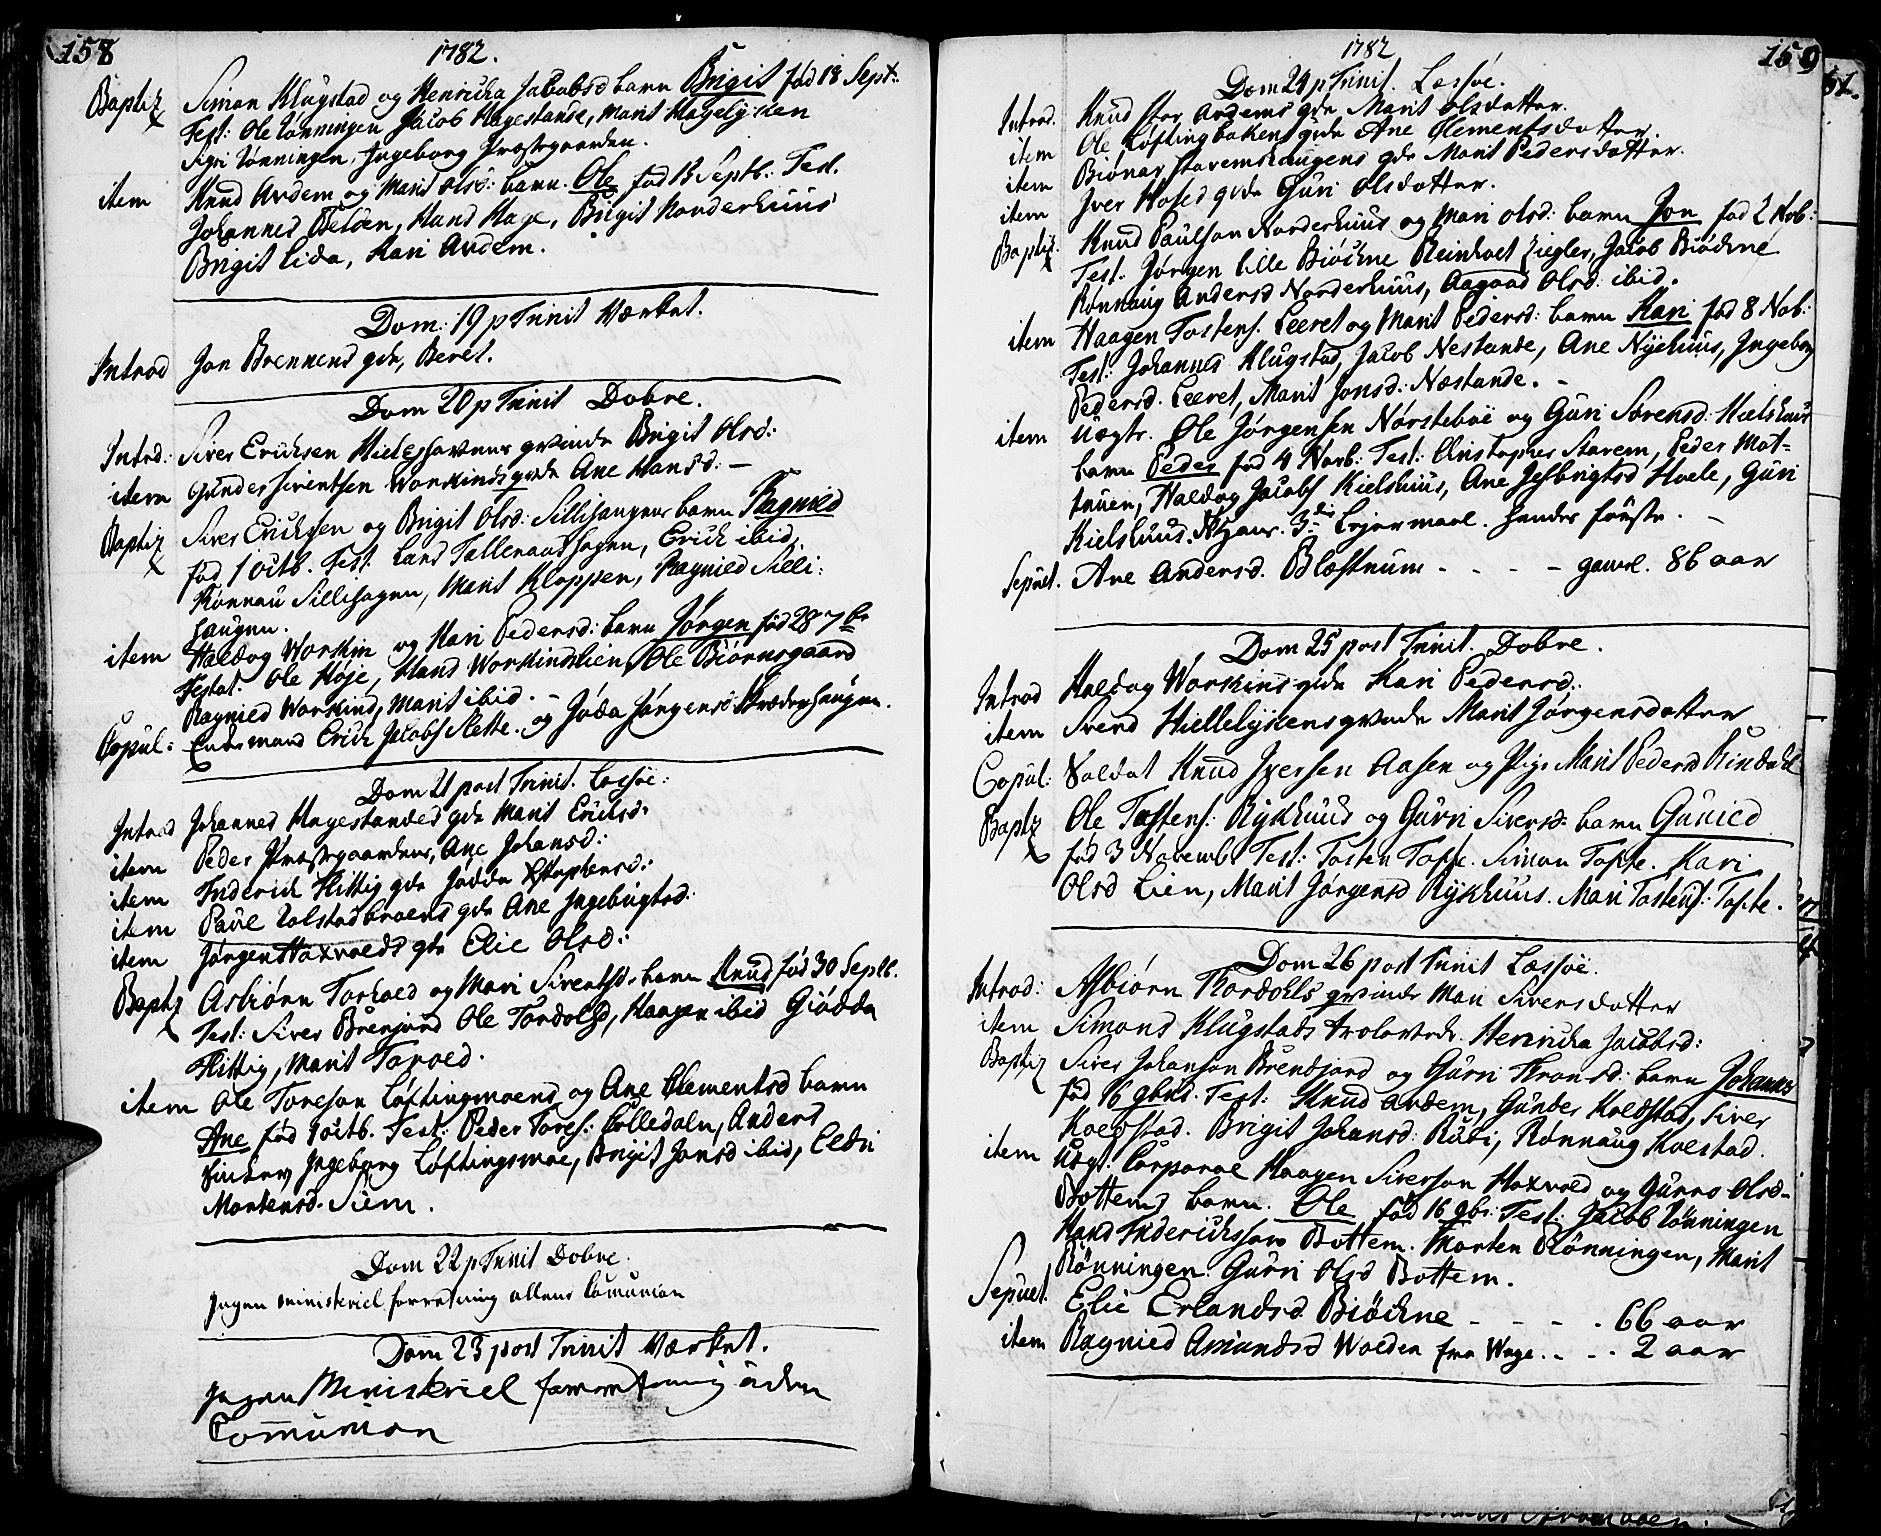 158
1782.
Baptiz Simon Klugstad og Henricka Jacobsd barn Brigit fød 18 Sept:
Test: Ole Rønningen Jacob Hagestande, Marit Hagelycken
Sigri Rønningen, Ingeborg Præstgaarden.
item Knud Ardem og Marit Olsd: barn. Ole fød 13 Septb: Test.
Johannes Belden, Hans Hage, Brigit Norderhuus
Brigit Lida, Kari Ardem.
Dom: 19 p Trinit Værket.
Introd Jon Brennens qde, Beret.
Dom 20 p Trinit Dobre.
Introd: Siver Ericksen Hieleshavnens qvinde Brigit Olsd:
item Gunder Siventsen Worskinds qvde Ane Hansd: –
Baptiz Siver Ericksen og Brigit Olsd: Sillihaugens barn Ragnild
fød 1 octb. Test. Lars Talleraashagen, Erick ibid,
Rønnau Sillihagen, Marit Kloppen, Ragnild Silli:
haugen.
item Haldog Worskin og Kari Pedersd: barn Jørgen fød 28 7br
Testat: Ole Høje, Hans Worskindslien, Ole Biørnsgaard
Ragnild Worskind, Marit ibid. –
Copul: Enkemand Erich Jacobs Slette. og Joda Jørgensd Skrædderhaugen.
Dom 21 post Trinit. Lessøe:
Introd Johannes Hagestandes qde Marit Ericksd:
item Peder Præstgaardens, Ane Johansd:
item Friderich Flittig qde Jødda Stephensd:
item Paul Kolstadbroens qde Ane Ingebrigtsd:
item Jørgen Haxvolds qde Elie Olsd:
Baptz Asbiørn Tordold og Mari Siventsd: barn Knud fød 30 Septb.
Test: Siver Brenjord Ole Tordolsd, Haagen ibid Giødda
Flittig, Marit Torold.
item Ole Toresøn Løftingmoens og Ane Clementsd barn
Ane fød 1 octb. Test: Peder Tores: Lilledalen, Anders
Ingeborg Løftingsmoe, Brigit Jonsd ibid, Eldri
Mortensd. Siem.
Dom 22 p Trinit Dobre.
Ingen ministeriel forretning allene Comunion
Dom 23 post Trinit Værket.
Ingen Ministeriel forretning uden
Comunion
159
1782
Dom 24 p Trinit. Lessøe.
Introd. Knud Stor Ardems qde Marit Olsdatter.
item Ole Løftingbakens qvde Ane Clementsdatter.
item Biønar Staremshaugens qde Marit Pedersdatter.
item Iver Hosed qvde Guri Olsdatter.
Baptiz: Knud Paulsøn Norderhuus og Mari Olsd: barn Jon fød 2 Nob:
Test: Jørgen Lille Biøckne Reinholt Ziegler, Jacob Biøckne
Rønnaug Andersd Norderhuus, Aagaad Olsd: ibid.
item Haagen Tostens. Leeret og Marit Pedersd: barn Kari fød 8 Nob:
Test: Johannes Klugstad, Jacob Nestande, Ane Nyehuus, Ingeborg
Pedersd. Leeret, Marit Jonsd: Nestande. –
item Uægte. Ole Jørgensen Nørsteboe og Guri Sorensd: Kielshuus
barn Peder fød 4 Novb: Test: Christopher Starem, Peder Mat-
truen, Haldog Jacobs Kielshuus, Ane Jesbrigtsd Hoele, Guri
Kielshuus. 3die Lejermaal. hendes første. –
Sepult. Ane Andersd. Blæstrum - - - - gaml. 86 aar
Dom 25 post Trinit. Dobre.
Introd Haldog Worskins qde Kari Pedersd:
item Svend Hiellelykens qvinde Marit Jørgensdatter
Copul: Soldat Knud Iversen Aasen og Pige Marit Pedersd Rindahl
Baptz Ole Tostens: Rykhuus og Guri Siversd: barn Gunild
fød 3 Novemb: Test: Tosten Tofte. Simon Tofte. Kari
Olsd Lien, Marit Jørgensd Rykhuus. Mari Tostens: Tofte.
Dom 26 post Trinit Lessøe.
Introd: Asbiørn Thordohls qvinde Mari Siversdatter
item Simons Klugstads trolovede. Henricka Jacobsd:
Baptiz Siver Johansøn Brendjord og Guri Thronsd: barn Johannes
fød 16 9bris. Test: Knud Ardem, Gunder Kolstad, Siver
Kolstad. Brigit Johansd: Rusti, Rønnaug Kolstad.
item Uægt. Corporal Haagen Siversøn Haxvold og Gunro Olsd-
Bottems barn. Ole fød 16 9br. Test: Jacob Rønningen
Hans Friderichssøn Bottem. Morten Rønningen, Marit
Rønningen. Guri Olsd Bottem.
Sepult. Elie Erlandsd Biøckne - - - - 66 aar
item Ragnild Amundsd Wolden fra Wage. . - - . 2 aar